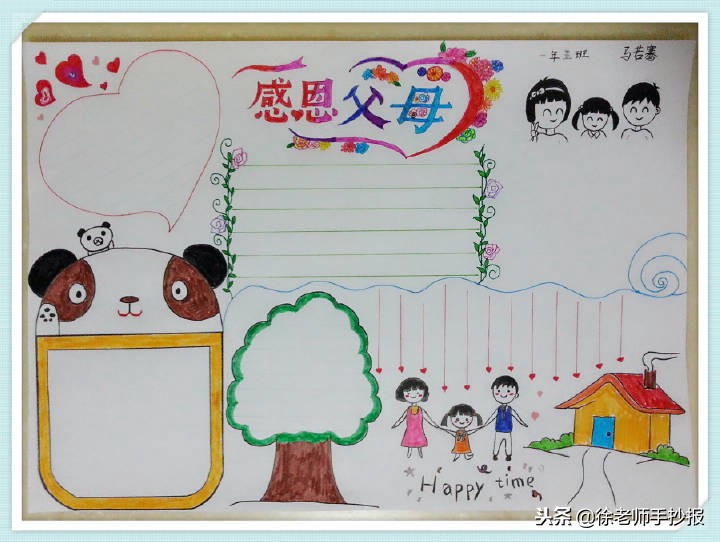 感恩父母
一年三班 马若騫
Happy time
头条 @徐老师手抄报